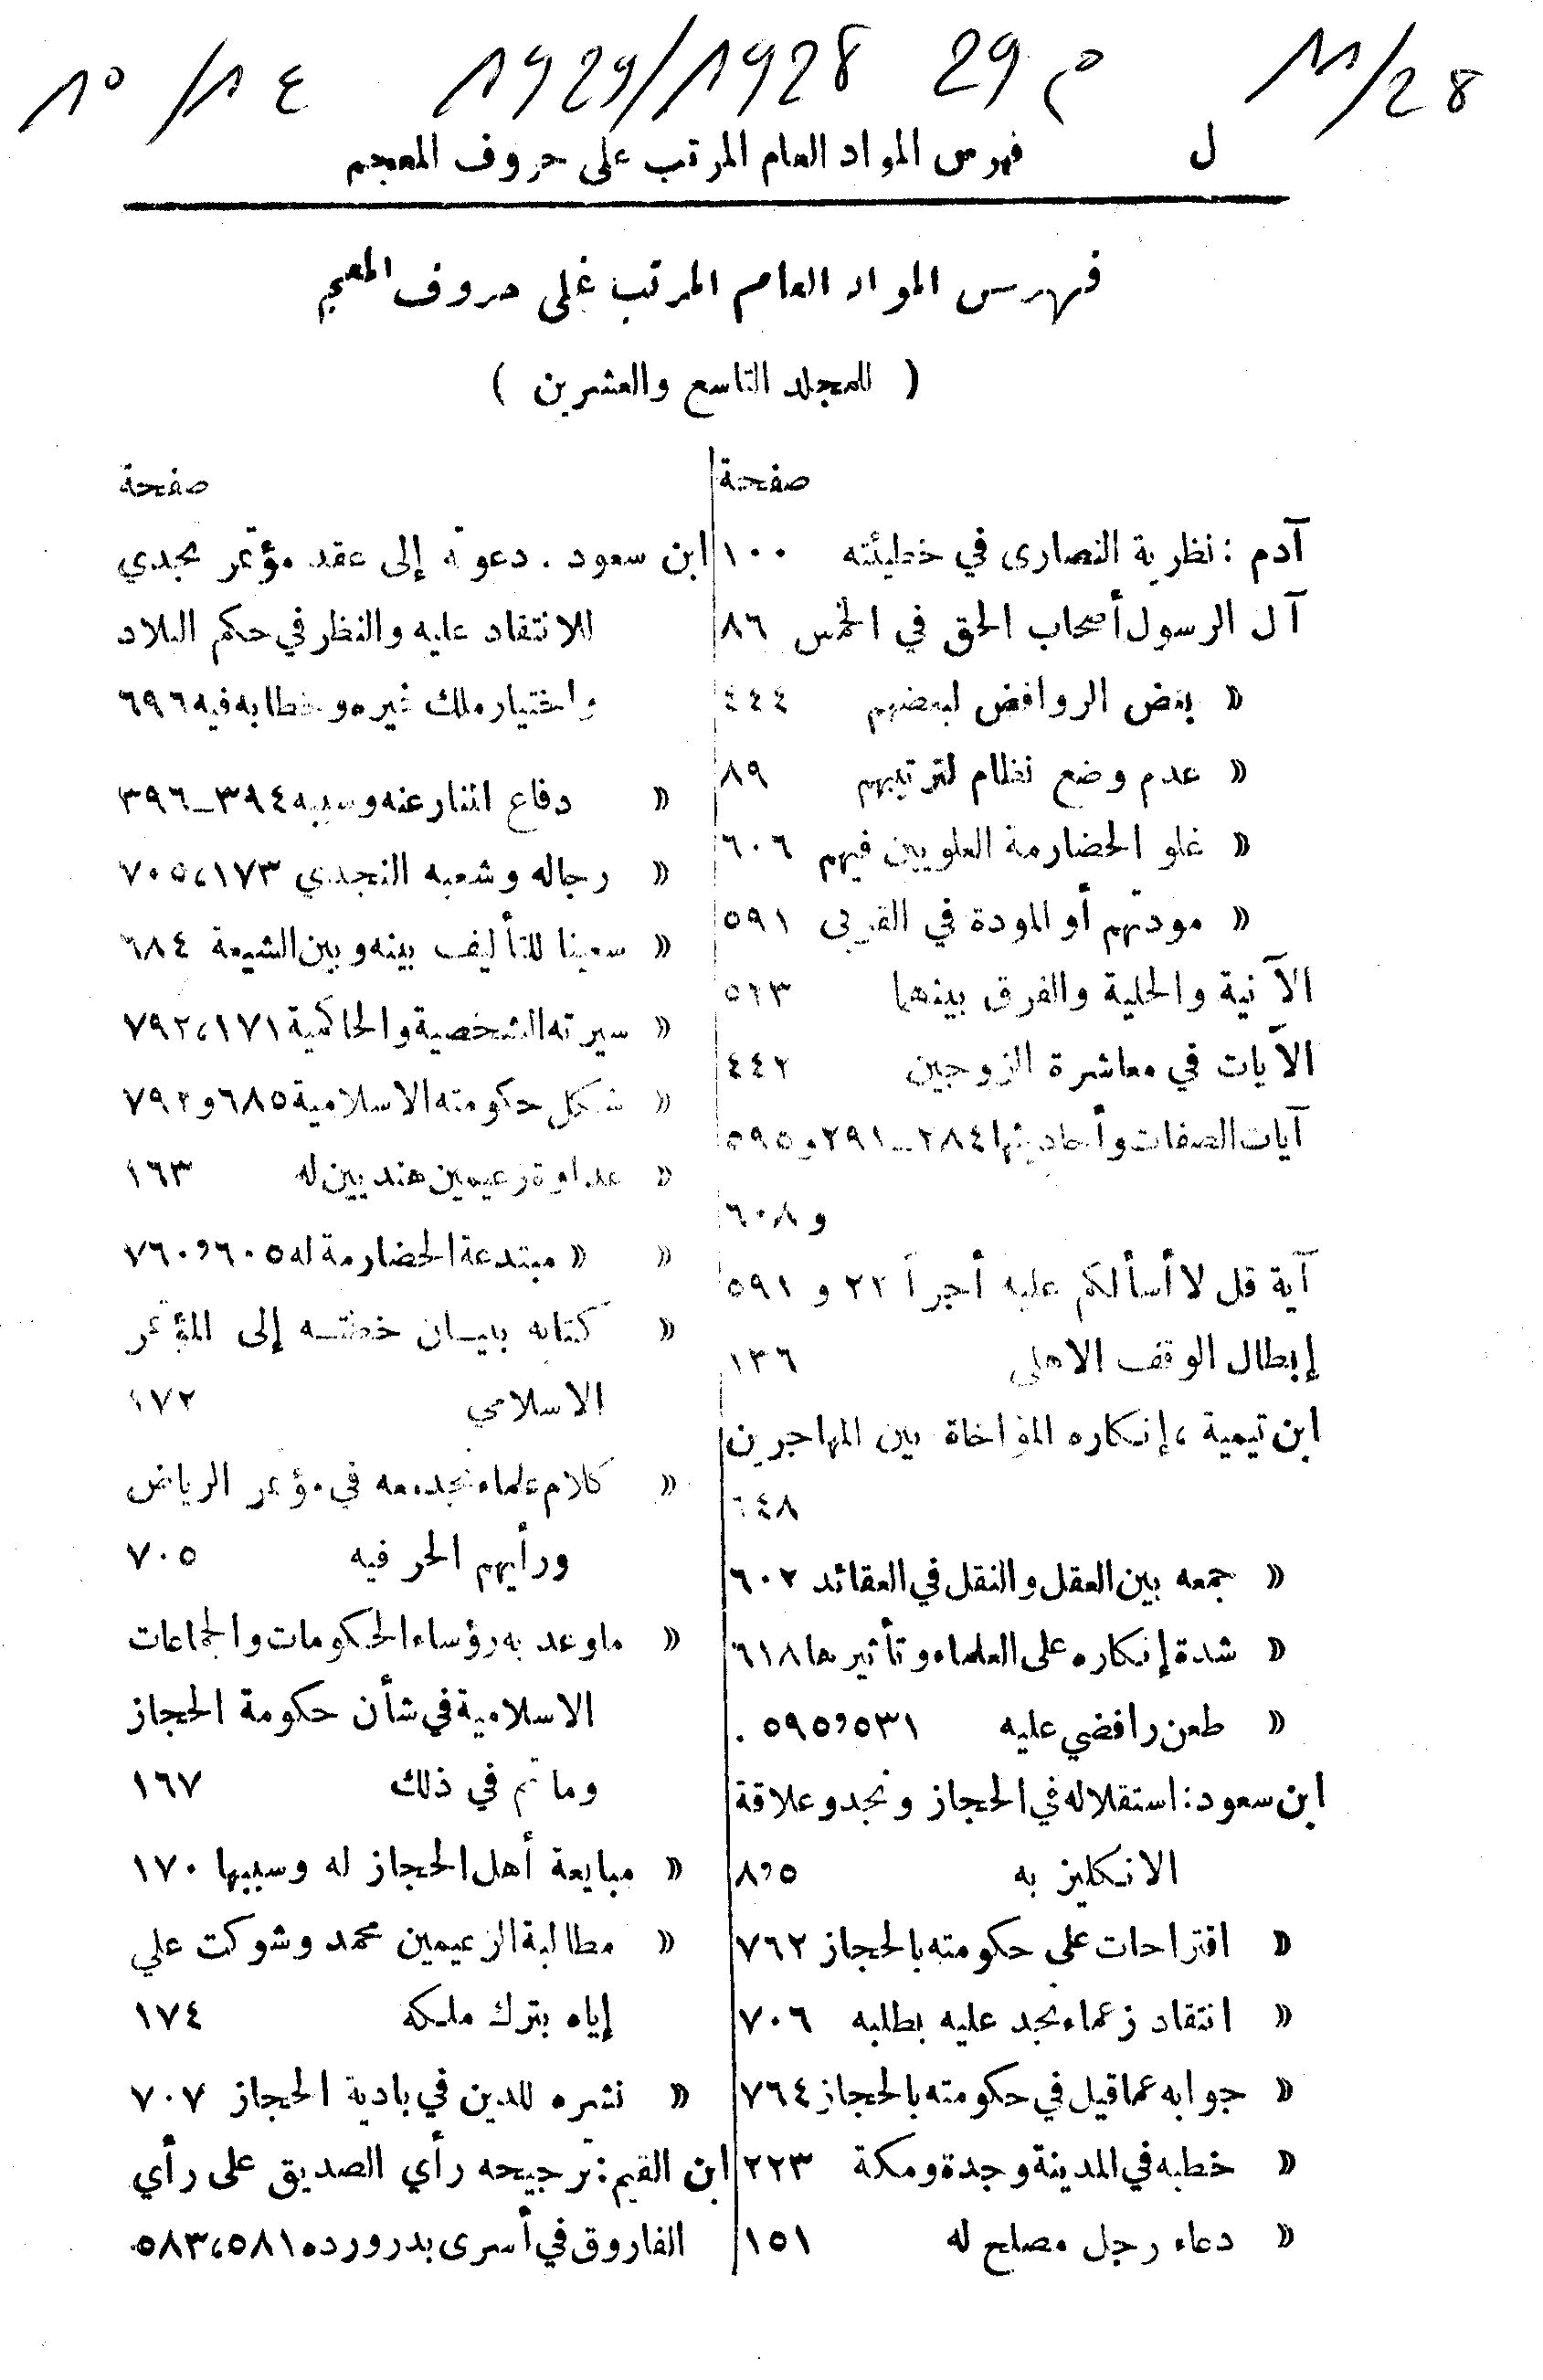 ١٥/١٤ 1929/1928 م 29 11/28
ل فهرس المواد العام المرتب على حروف المعجم
فهرس المواد العام المرتب على حروف المعجم
( للمجلد التاسع والعشرين )
صفحة
آدم : نظرية النصارى في خطيئته ١٠٠
آل الرسول أصحاب الحق في الخمس ٨٦
« بغض الروافض لبعضهم ٤٤٤
« عدم وضع نظام لترتيبهم ٨٩
« غلو الحضارمة العلويين فيهم ٦٠٦
« مودتهم أو المودة في القربى ٥٩١
الآنية والحلية والفرق بينهما ٥٦٣
الآيات في معاشرة الزوجين ٤٤٢
آيات الصفات وأحاديثها ٢٨٤ـ٢٩١ و٥٩٥
و ٦٠٨
آية قل لا أسألكم عليه أجراً ٢٢ و ٥٩١
إبطال الوقف الاهلي ١٣٦
ابن تيمية ، إنكاره المؤاخاة بين المهاجرين
٦٤٨
« جمعه بين العقل والنقل في العقائد ٦٠٢
« شدة إنكاره على العلماء وتأثيرها ٦١٨
« طعن رافضي عليه ٥٣١و٥٩٥ .
ابن سعود : استقلاله في الحجاز ونجد وعلاقة
الانكليز به ٥و٨
« اقتراحات على حكومته بالحجاز ٧٦٢
« انتقاد زعماء نجد عليه بطلبه ٧٠٦
« جوابه عما قيل في حكومته بالحجاز ٧٦٤
« خطبه في المدينة وجدة ومكة ٢٢٣
« دعاء رجل مصلح له ١٥١
صفحة
ابن سعود . دعوته إلى عقد مؤتمر نجدي
للانتقاد عليه والنظر في حكم البلاد
واختيار ملك غيره وخطابه فيه ٦٩٦
« دفاع المنار عنه وسببه ٣٩٤ـ٣٩٦
« رجاله وشعبه النجدي ١٧٣، ٧٠٥
« سعينا للتأليف بينه وبين الشيعة ٦٨٤
« سيرته الشخصية والحاكمية ١٧١، ٧٩٢
« شكل حكومته الاسلامية ٦٨٥ و ٧٩٢
« عداوة زعيمين هنديين له ١٦٣
« « مبتدعة الحضارمة له ٦٠٥ و٧٦٠
« كتابه ببيان خطته إلى المؤتمر
الاسلامي ١٧٢
« كلام علماء نجد معه في مؤتمر الرياض
ورأيهم الحر فيه ٧٠٥
« ما وعد به رؤساء الحكومات والجماعات
الاسلامية في شأن حكومة الحجاز
وما تم في ذلك ١٦٧
« مبايعة أهل الحجاز له وسببها ١٧٠
« مطالبة الزعيمين محمد وشوكت علي
إياه بترك ملكه ١٧٤
« نشره للدين في بادية الحجاز ٧٠٧
ابن القيم : ترجيحه رأي الصديق على رأي
الفاروق في أسرى بدر ورده ٥٨١، ٥٨٣